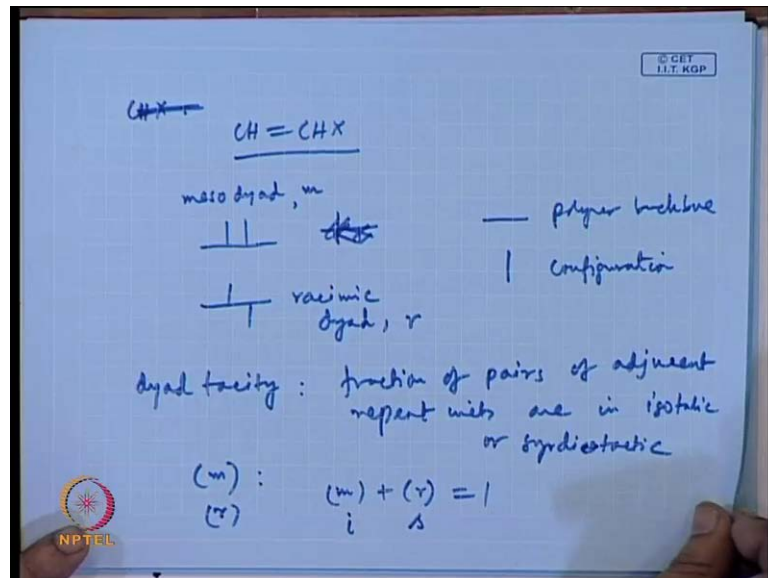 © CET
I.I.T. KGP
CHX
CH = CHX
meso dyad, m
polymer backbone
configuration
racimic
dyad, r
dyad tacity : fraction of pairs of adjacent
repeat units are in isotatic
or syndiotactic
(m) :
(r)
(m) + (r) = 1
i s
NPTEL